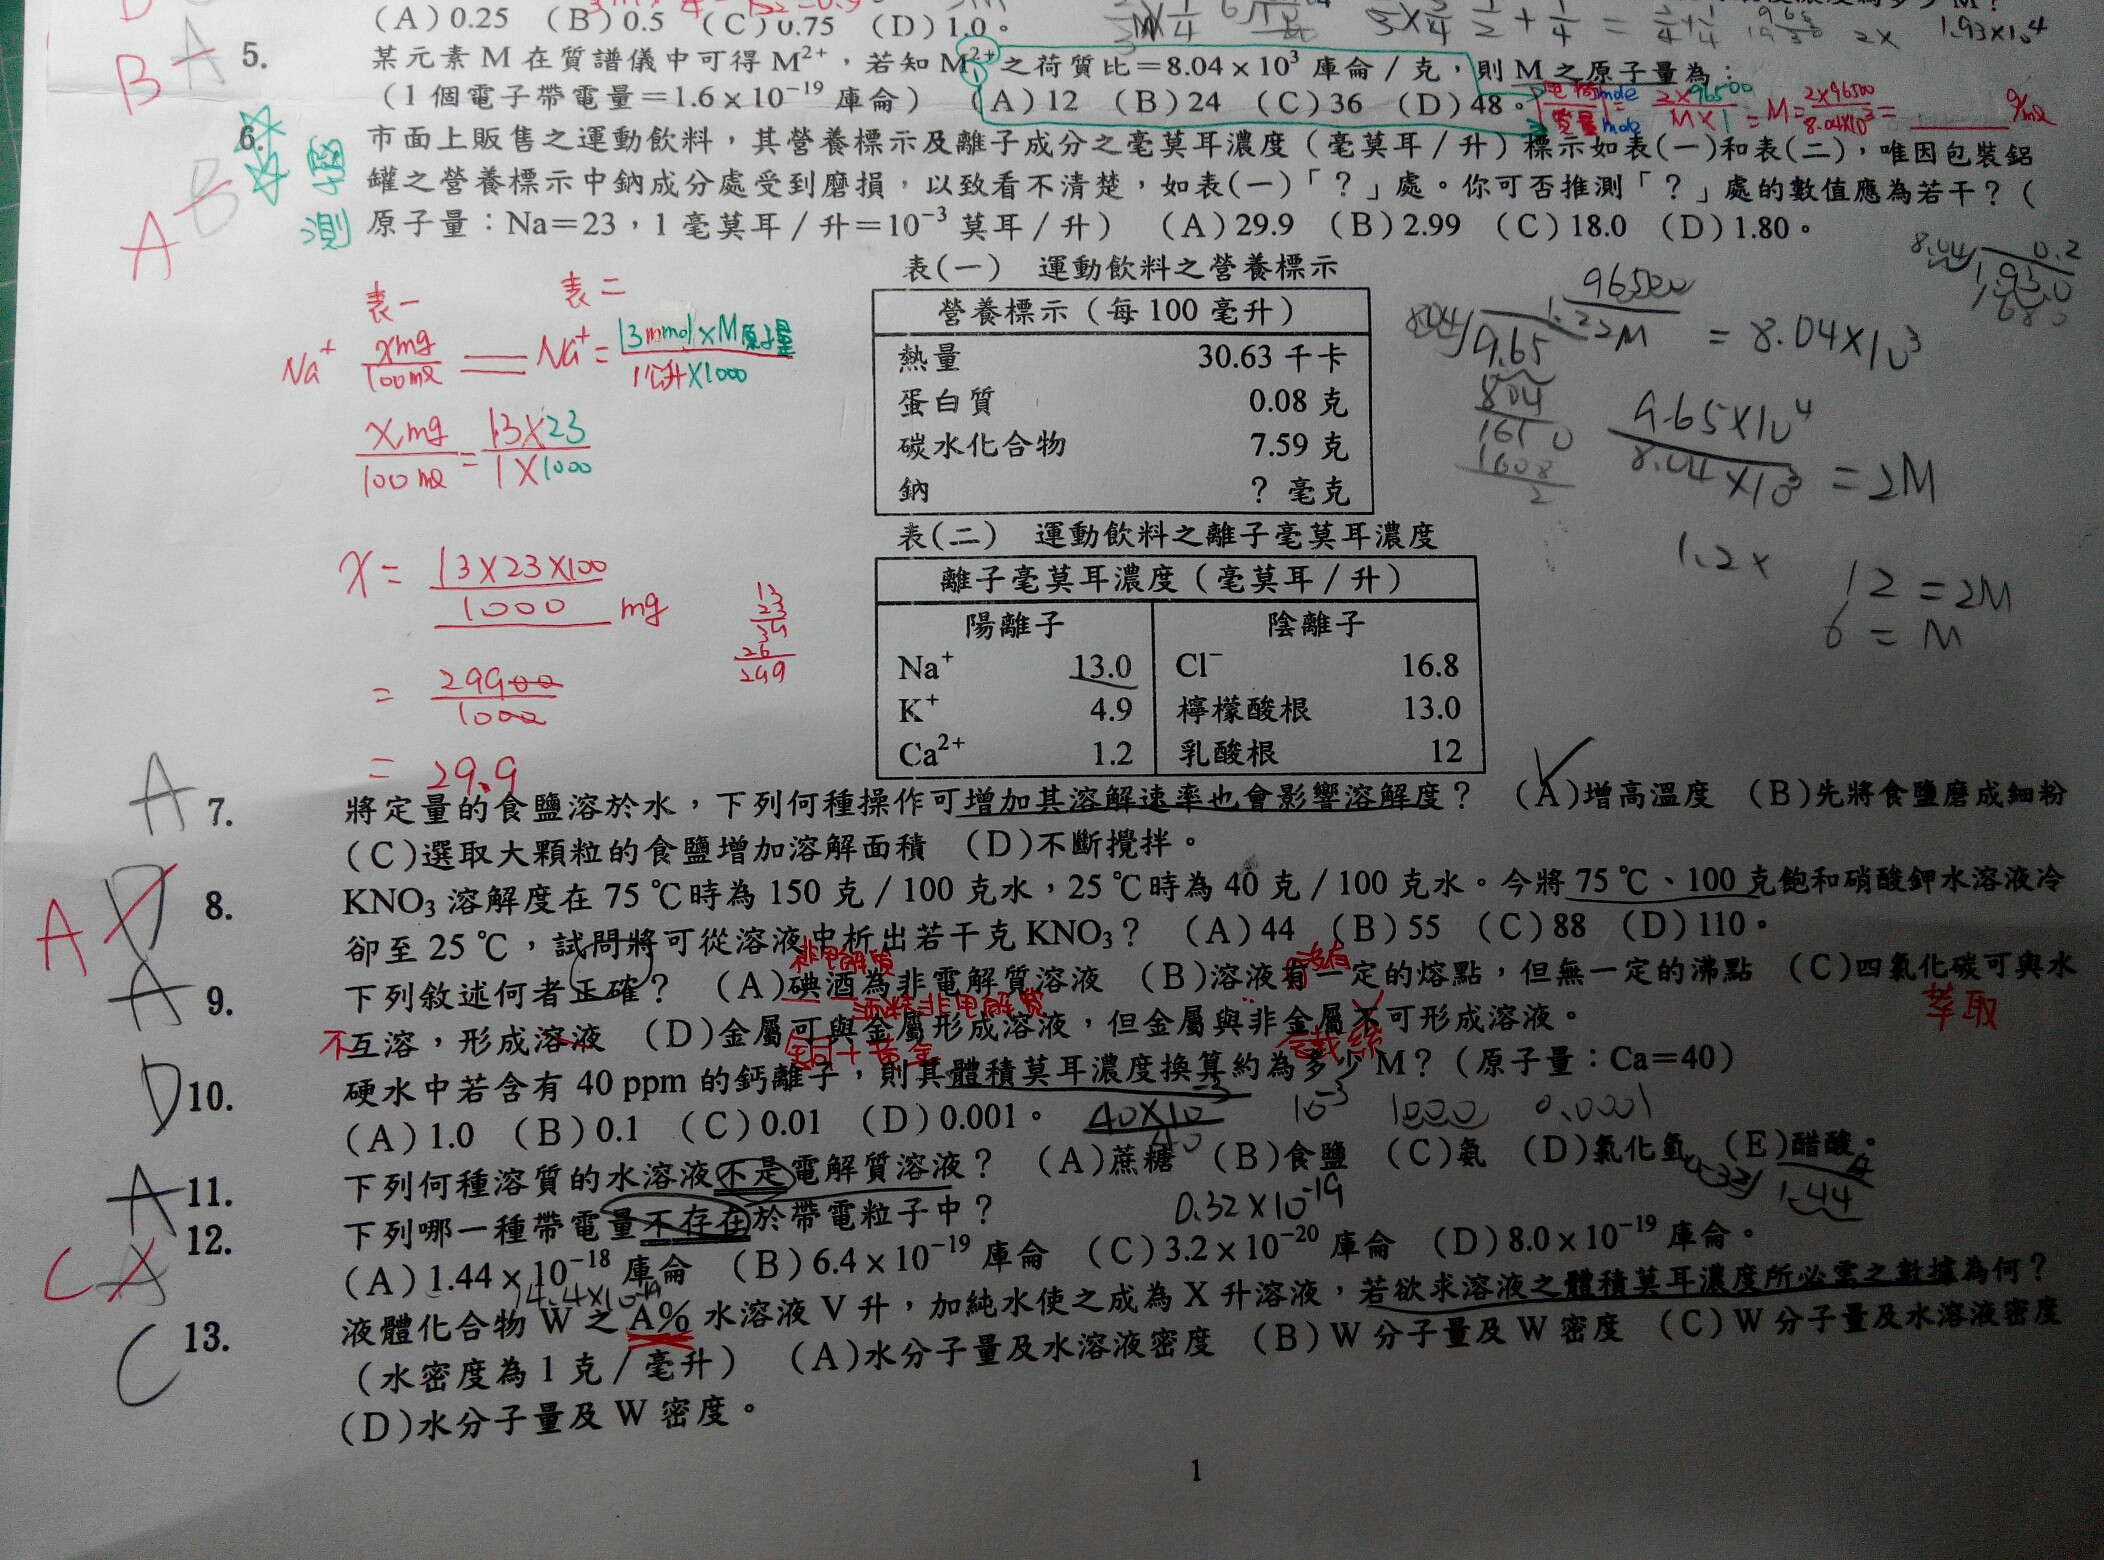 (A)0.25 (B)0.5 (C)0.75 (D)1.0。
B A 5. 某元素 M 在質譜儀中可得 M²⁺，若知 M²⁺ 之荷質比＝8.04×10³ 庫侖/克，則 M 之原子量為：
(1 個電子帶電量＝1.6×10⁻¹⁹ 庫侖) (A)12 (B)24 (C)36 (D)48。
電荷mole 質量mole = 2×96500 / M×1 = M = 2×96500 / 8.04×10³ =
A B 6. 市面上販售之運動飲料，其營養標示及離子成分之毫莫耳濃度(毫莫耳/升)標示如表(一)和表(二)，唯因包裝鋁
學測
罐之營養標示中鈉成分處受到磨損，以致看不清楚，如表(一)「？」處。你可否推測「？」處的數值應為若干？(
原子量：Na＝23，1 毫莫耳/升＝10⁻³ 莫耳/升) (A)29.9 (B)2.99 (C)18.0 (D)1.80。
表(一) 運動飲料之營養標示
營養標示(每 100 毫升)
熱量 30.63 千卡
蛋白質 0.08 克
碳水化合物 7.59 克
鈉 ? 毫克
表(二) 運動飲料之離子毫莫耳濃度
離子毫莫耳濃度(毫莫耳/升)
陽離子 陰離子
Na⁺ 13.0 Cl⁻ 16.8
K⁺ 4.9 檸檬酸根 13.0
Ca²⁺ 1.2 乳酸根 12
表一 表二
Na⁺ xmg / 100ml = Na⁺ = 13mmol×M原子量 / 1公升×1000
xmg / 100ml = 13×23 / 1×1000
x = 13×23×100 / 1000 mg
= 29900 / 1000
= 29.9
13
23
39
26
299
96500 / 2M = 8.04×10³
9.65×10⁴ / 8.04×10³ = 2M
1.2×
12 = 2M
6 = M
A 7. 將定量的食鹽溶於水，下列何種操作可增加其溶解速率也會影響溶解度？ (A)增高溫度 (B)先將食鹽磨成細粉
(C)選取大顆粒的食鹽增加溶解面積 (D)不斷攪拌。
A D 8. KNO₃ 溶解度在 75 ℃時為 150 克/100 克水，25 ℃時為 40 克/100 克水。今將 75 ℃、100 克飽和硝酸鉀水溶液冷
卻至 25 ℃，試問將可從溶液中析出若干克 KNO₃？ (A)44 (B)55 (C)88 (D)110。
非電解質 沒有
A 9. 下列敘述何者正確？ (A)碘酒為非電解質溶液 (B)溶液有一定的熔點，但無一定的沸點 (C)四氯化碳可與水
酒精非電解質 萃取
不互溶，形成溶液 (D)金屬可與金屬形成溶液，但金屬與非金屬不可形成溶液。
D 10. 硬水中若含有 40 ppm 的鈣離子，則其體積莫耳濃度換算約為多少 M？(原子量：Ca＝40)
(A)1.0 (B)0.1 (C)0.01 (D)0.001。
40×10⁻³ / 40 10⁻³ 1000 0.0001
A 11. 下列何種溶質的水溶液不是電解質溶液？ (A)蔗糖 (B)食鹽 (C)氨 (D)氯化氫 (E)醋酸。
C A 12. 下列哪一種帶電量不存在於帶電粒子中？
0.32×10⁻¹⁹
(A)1.44×10⁻¹⁸ 庫侖 (B)6.4×10⁻¹⁹ 庫侖 (C)3.2×10⁻²⁰ 庫侖 (D)8.0×10⁻¹⁹ 庫侖。
14.4×10⁻¹⁹
C 13. 液體化合物 W 之 A% 水溶液 V 升，加純水使之成為 X 升溶液，若欲求溶液之體積莫耳濃度所必需之數據為何？
(水密度為 1 克/毫升) (A)水分子量及水溶液密度 (B)W 分子量及 W 密度 (C)W 分子量及水溶液密度
(D)水分子量及 W 密度。
1